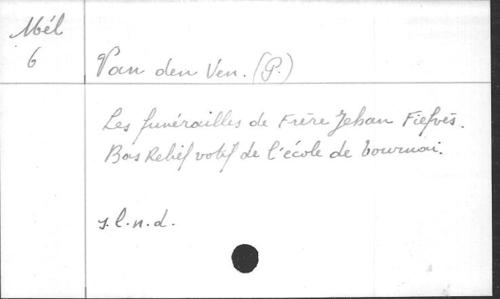 Mél
6
Van den Ven. (P.)
Les funérailles de Frère Jehan Fiefvès.
Bas Relief votif de l'école de Tournai.
s.l.n.d.